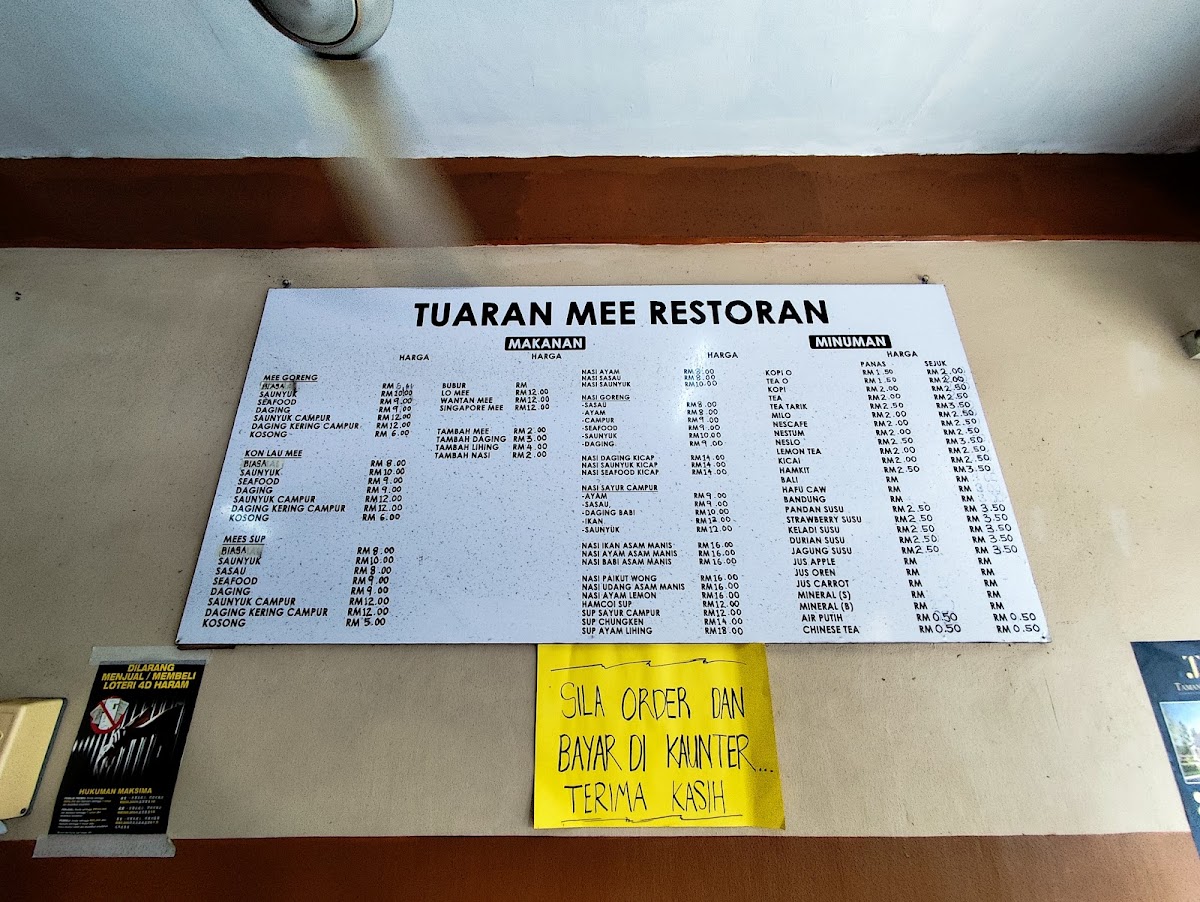 TUARAN MEE RESTORAN
MAKANAN
HARGA
MEE GORENG
BIASA
SAUNYUK RM10.00
SEAFOOD RM 9.00
DAGING RM 9.00
SAUNYUK CAMPUR RM12.00
DAGING KERING CAMPUR RM12.00
KOSONG RM 6.00
KON LAU MEE
BIASA RM 8.00
SAUNYUK RM10.00
SEAFOOD RM 9.00
DAGING RM 9.00
SAUNYUK CAMPUR RM12.00
DAGING KERING CAMPUR RM12.00
KOSONG RM 6.00
MEES SUP
BIASA RM 8.00
SAUNYUK RM10.00
SASAU RM 8.00
SEAFOOD RM 9.00
DAGING RM 9.00
SAUNYUK CAMPUR RM12.00
DAGING KERING CAMPUR RM12.00
KOSONG RM 5.00
HARGA
BUBUR RM
LO MEE RM12.00
WANTAN MEE RM12.00
SINGAPORE MEE RM12.00
TAMBAH MEE RM 2.00
TAMBAH DAGING RM 3.00
TAMBAH LIHING RM 4.00
TAMBAH NASI RM 2.00
HARGA
NASI AYAM RM 8.00
NASI SASAU RM 8.00
NASI SAUNYUK RM10.00
NASI GORENG
-SASAU RM 8.00
-AYAM RM 8.00
-CAMPUR RM 9.00
-SEAFOOD RM 9.00
-SAUNYUK RM10.00
-DAGING RM 9.00
NASI DAGING KICAP RM14.00
NASI SAUNYUK KICAP RM14.00
NASI SEAFOOD KICAP RM14.00
NASI SAYUR CAMPUR
-AYAM RM 9.00
-SASAU, RM 9.00
-DAGING BABI RM10.00
-IKAN RM12.00
-SAUNYUK RM12.00
NASI IKAN ASAM MANIS RM16.00
NASI AYAM ASAM MANIS RM16.00
NASI BABI ASAM MANIS RM16.00
NASI PAIKUT WONG RM16.00
NASI UDANG ASAM MANIS RM16.00
NASI AYAM LEMON RM16.00
HAMCOI SUP RM12.00
SUP SAYUR CAMPUR RM12.00
SUP CHUNGKEN RM14.00
SUP AYAM LIHING RM18.00
MINUMAN
HARGA
PANAS SEJUK
KOPI O RM 1.50 RM 2.00
TEA O RM 1.50 RM 2.00
KOPI RM 2.00 RM 2.50
TEA RM 2.00 RM 2.50
TEA TARIK RM 2.50 RM 3.50
MILO RM 2.00 RM 2.50
NESCAFE RM 2.00 RM 2.50
NESTUM RM 2.00 RM 2.50
NESLO RM 2.50 RM 3.50
LEMON TEA RM 2.00 RM 2.50
KICAI RM 2.00 RM 2.50
HAMKIT RM 2.50 RM 3.50
BALI RM RM
HAFU CAW RM RM
BANDUNG RM RM
PANDAN SUSU RM 2.50 RM 3.50
STRAWBERRY SUSU RM 2.50 RM 3.50
KELADI SUSU RM 2.50 RM 3.50
DURIAN SUSU RM 2.50 RM 3.50
JAGUNG SUSU RM 2.50 RM 3.50
JUS APPLE RM RM
JUS OREN RM RM
JUS CARROT RM RM
MINERAL (S) RM RM
MINERAL (B) RM RM
AIR PUTIH RM 0.50 RM 0.50
CHINESE TEA RM 0.50 RM 0.50
SILA ORDER DAN
BAYAR DI KAUNTER...
TERIMA KASIH
DILARANG
MENJUAL / MEMBELI
LOTERI 4D HARAM
HUKUMAN MAKSIMA